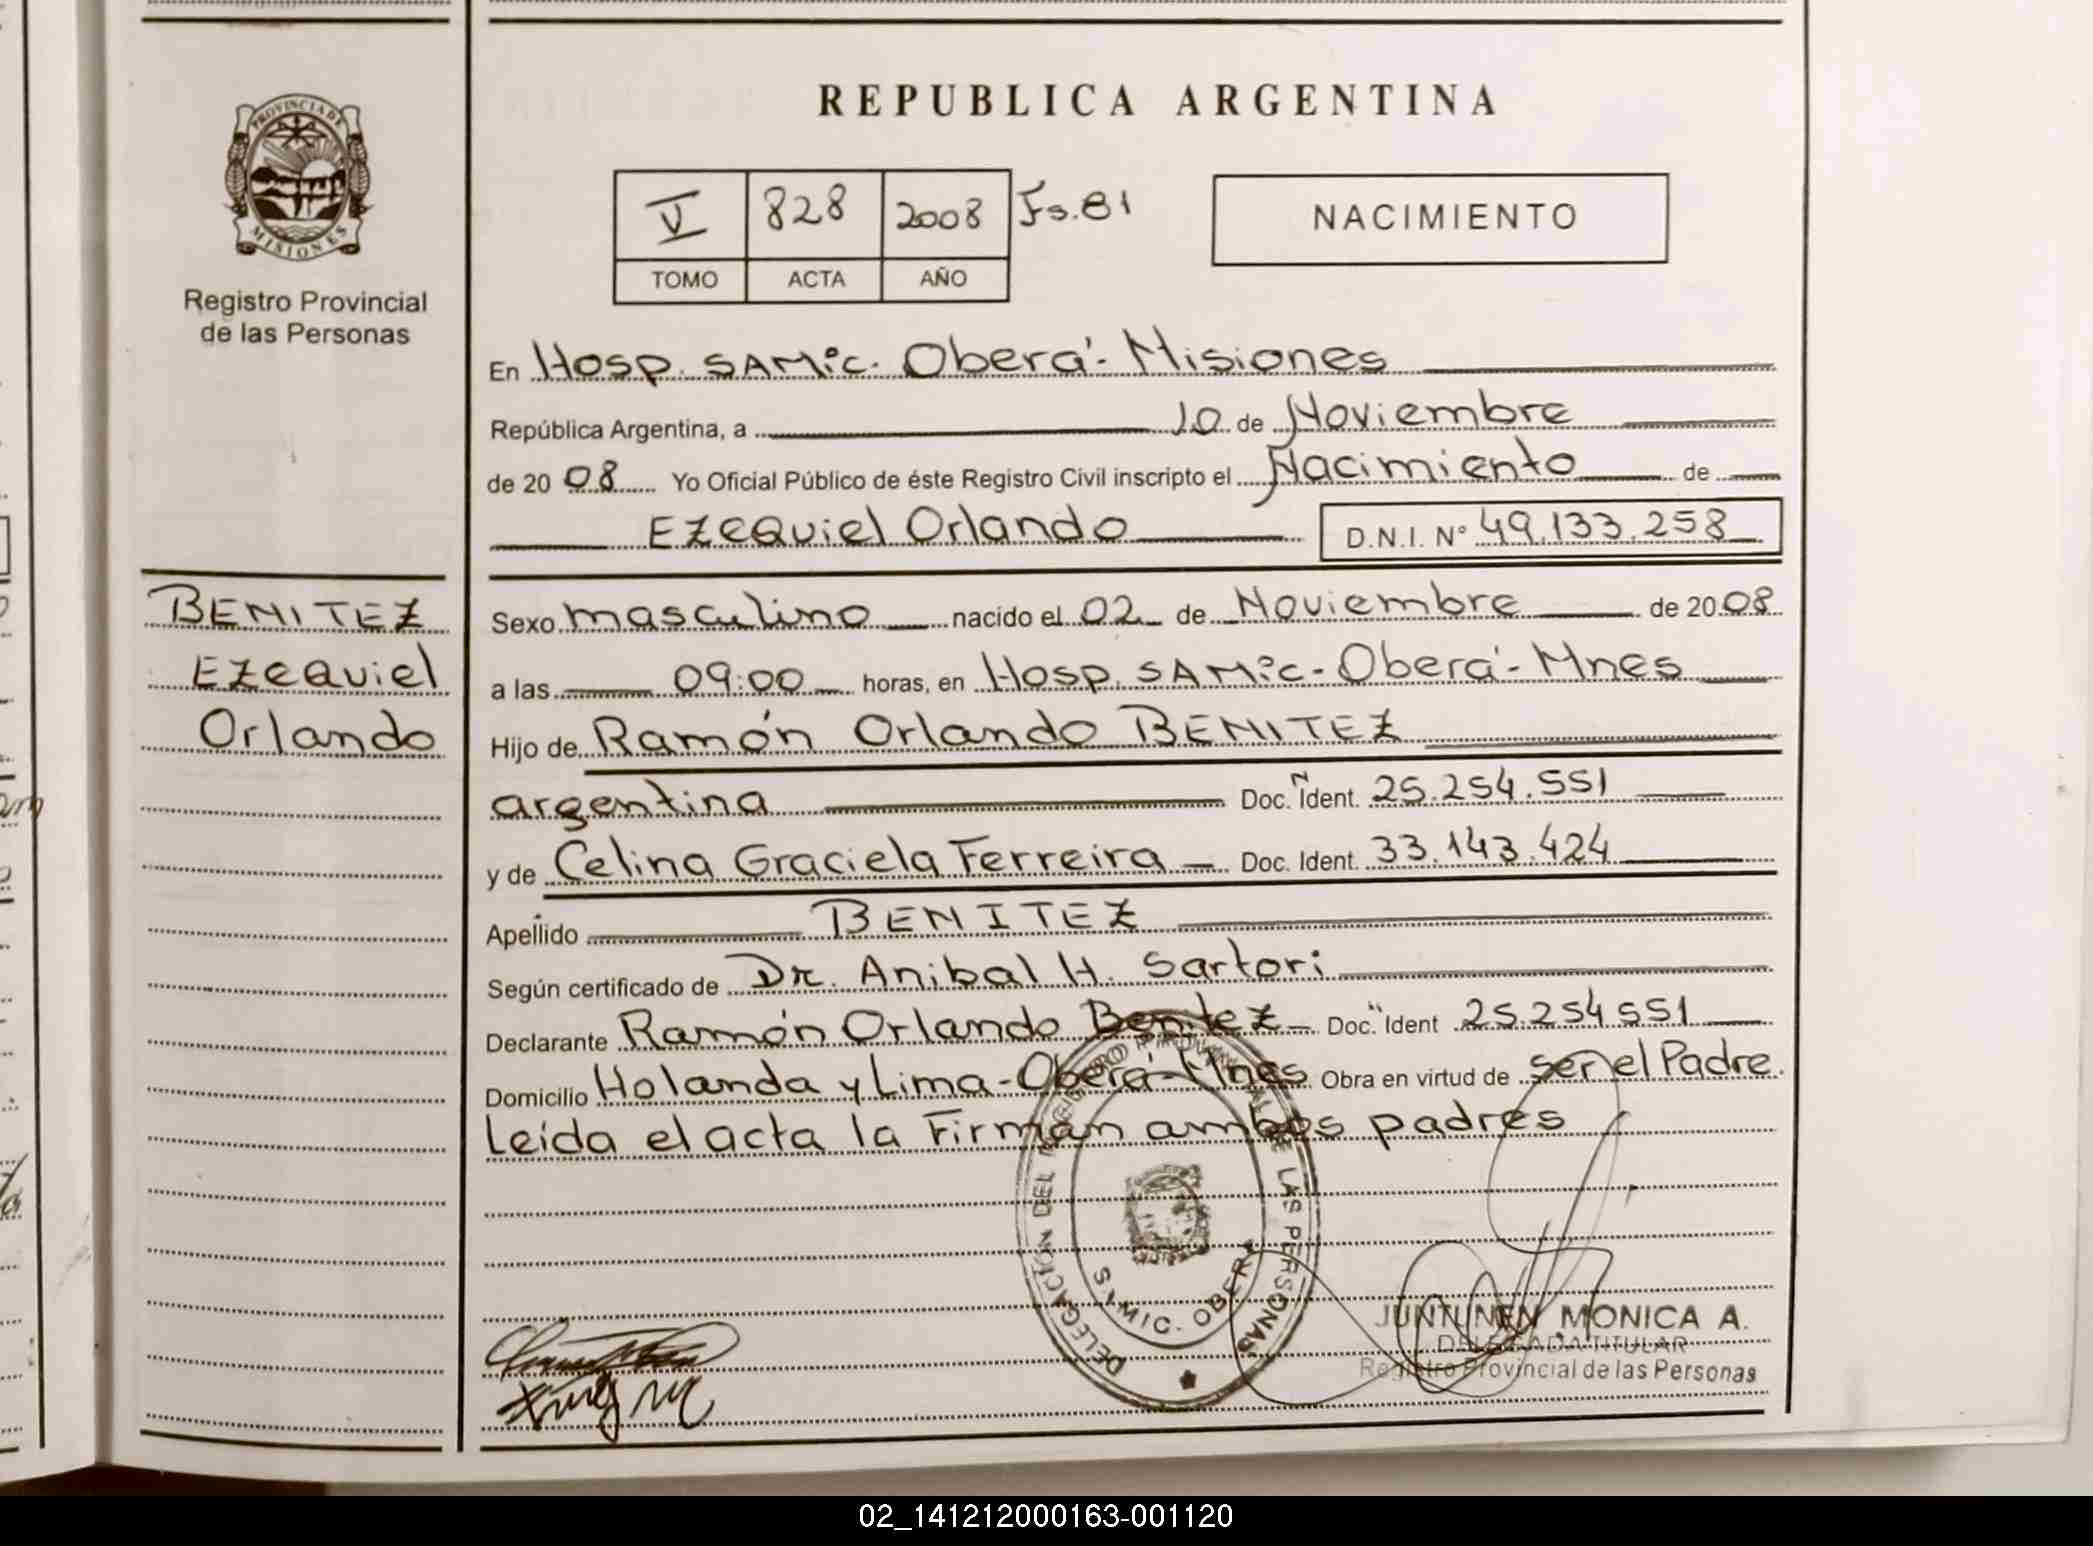 REPUBLICA ARGENTINA
PROVINCIA DE
MISIONES
Registro Provincial
de las Personas
V 828 2008 Fs. 81
TOMO ACTA AÑO
NACIMIENTO
En Hosp. SAMiC. Oberá - Misiones
República Argentina, a 10 de Noviembre
de 2008 Yo Oficial Público de éste Registro Civil inscripto el Nacimiento de
Ezequiel Orlando D.N.I. N° 49.133.258
BENITEZ
Ezequiel
Orlando
Sexo masculino nacido el 02 de Noviembre de 2008
a las 09:00 horas, en Hosp. SAMiC - Oberá - Mnes
Hijo de Ramón Orlando BENITEZ
argentina Doc. Ident. 25.254.551
y de Celina Graciela Ferreira Doc. Ident. 33.143.424
Apellido BENITEZ
Según certificado de Dr. Anibal H. Sartori
Declarante Ramón Orlando Benitez Doc. Ident 25.254.551
Domicilio Holanda y Lima - Oberá - Mnes Obra en virtud de ser el Padre.
Leída el acta la Firman ambos padres
DELEGACIÓN DEL REGISTRO PROVINCIAL DE LAS PERSONAS
OBERA
JUNTUNEN MONICA A.
DELEGADA TITULAR
Registro Provincial de las Personas
02_141212000163-001120